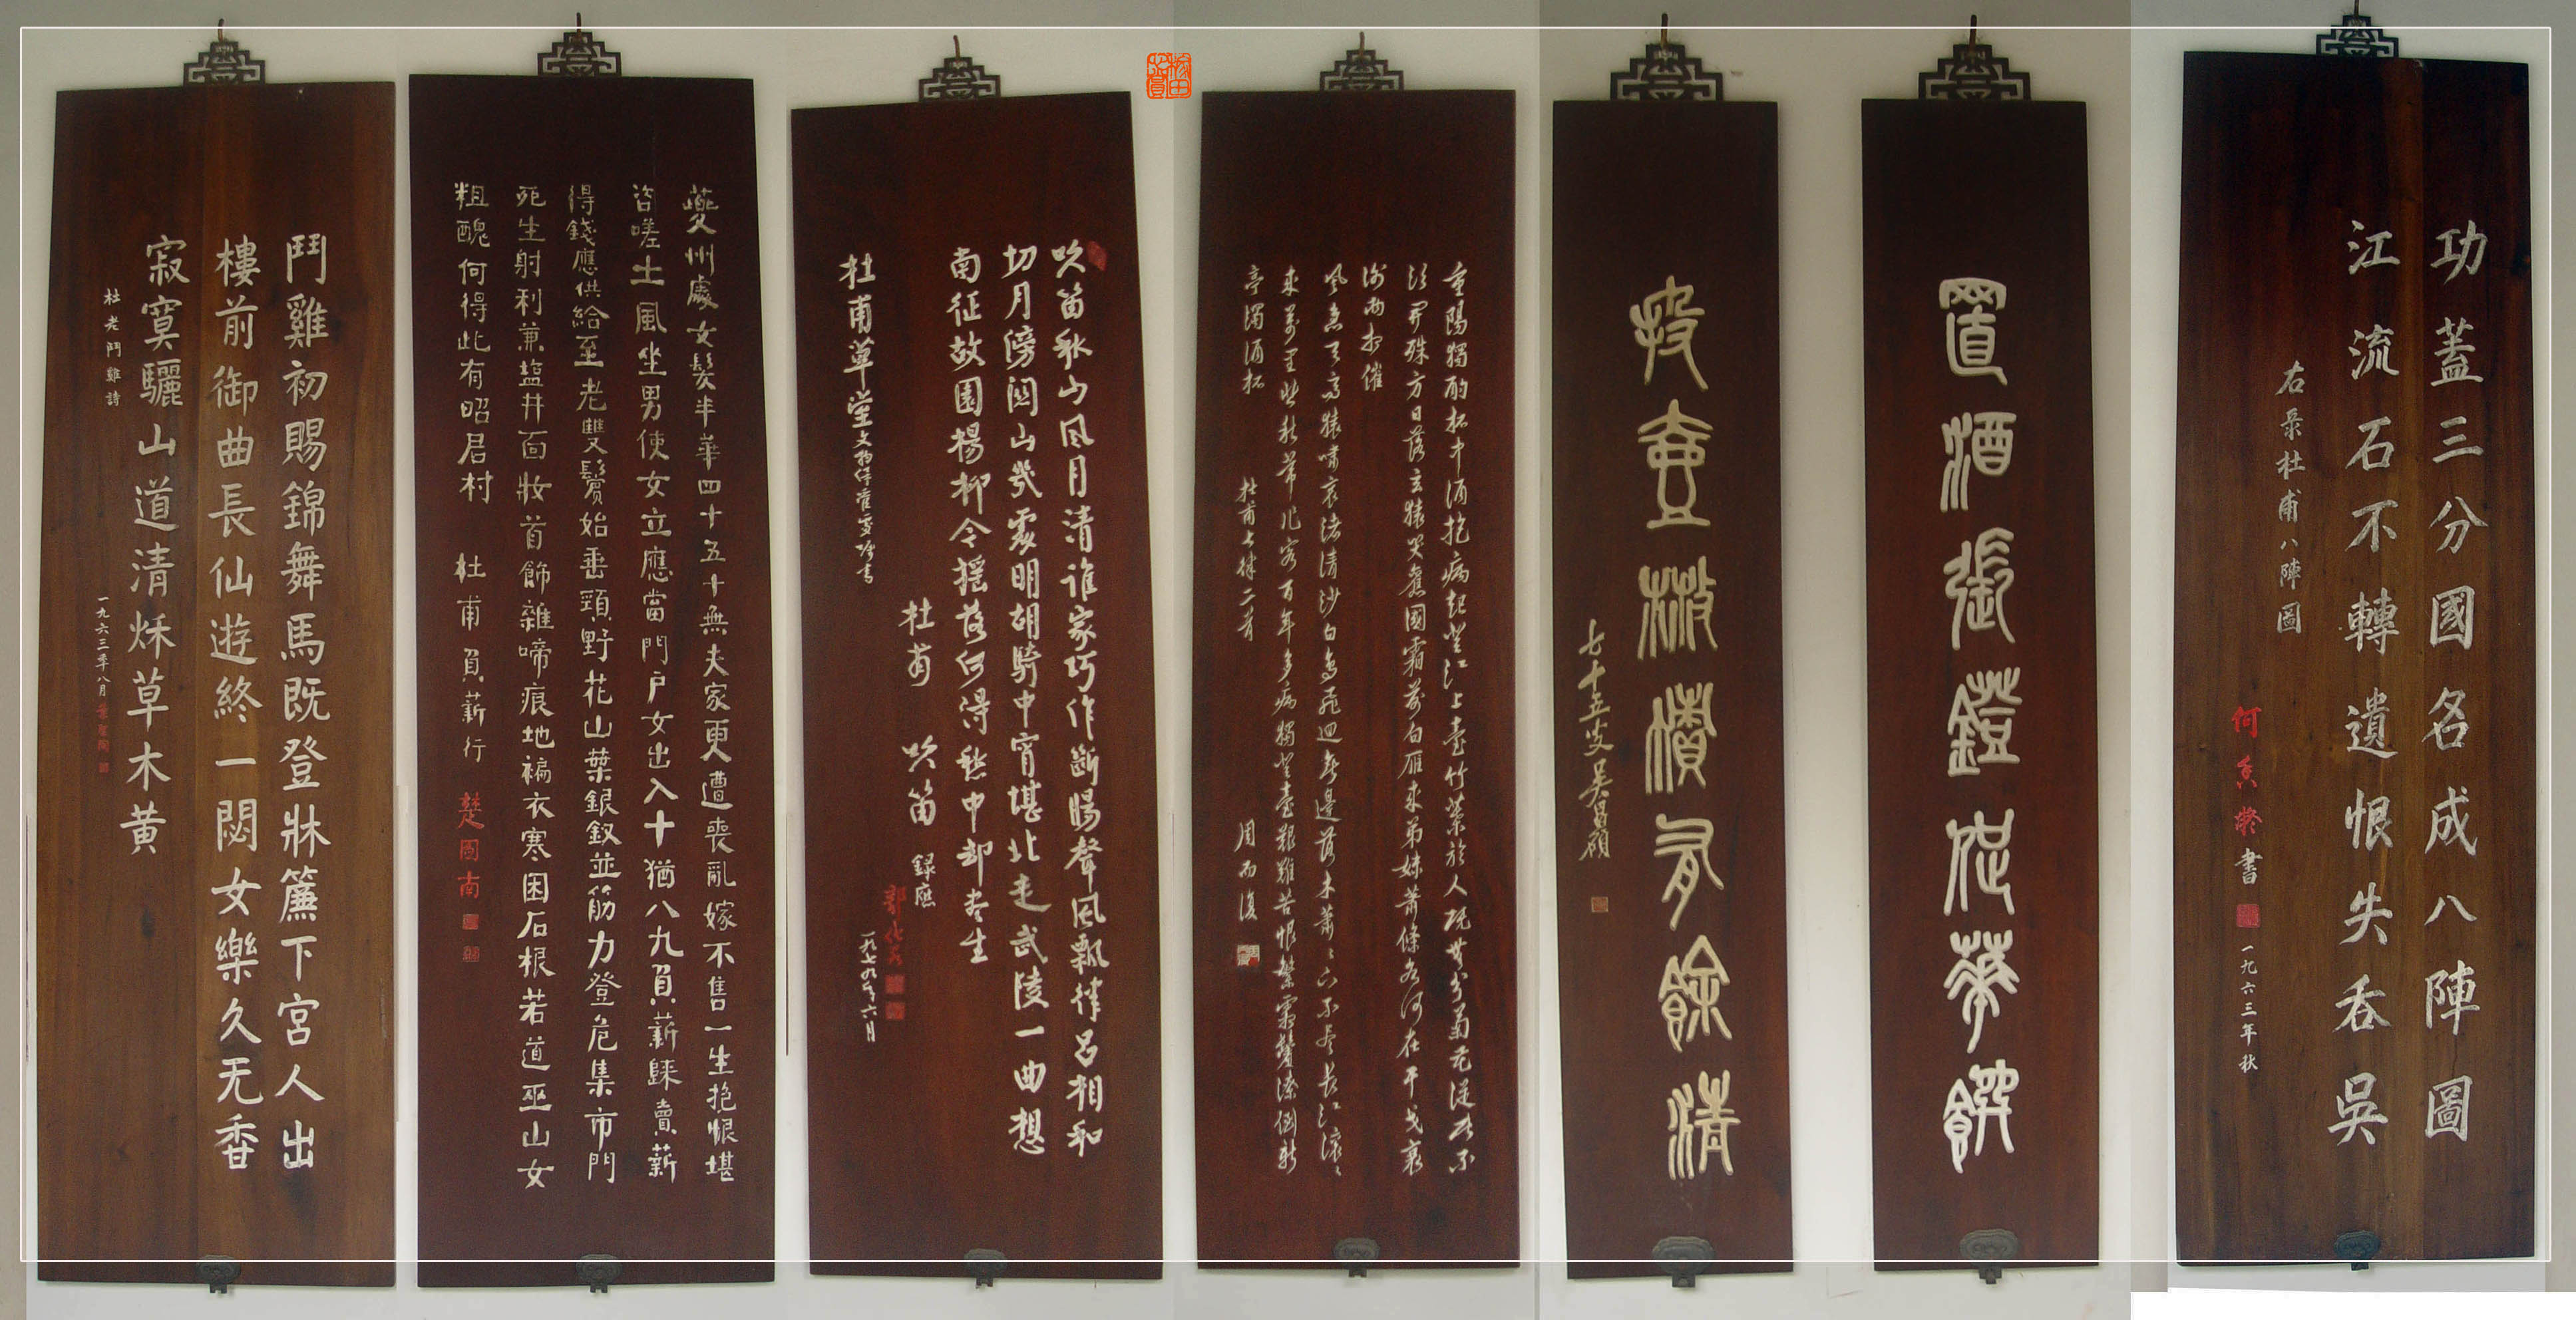 功蓋三分國名成八陣圖
江流石不轉遺恨失吞吳
右录杜甫八陣圖
何香凝書 一九六三年秋
置酒張鐙促華饌
投壺散帙有餘清
七十五叟吳昌碩
重陽獨酌杯中酒抱病起登江上臺竹葉於人既無分菊花從此不
須開殊方日落玄猿哭舊國霜前白雁來弟妹蕭條各何在干戈衰
謝兩相催
風急天高猿嘯哀渚清沙白鳥飛迴無邊落木蕭〻下不盡長江滾〻
來萬里悲秋常作客百年多病獨登臺艱難苦恨繁霜鬢潦倒新
亭濁酒杯 杜甫七律二首 周而復
吹笛秋山风月清誰家巧作斷腸聲风飄律呂相和
切月傍關山幾處明胡騎中宵堪北走武陵一曲想
南征故園楊柳今搖落何得愁中却盡生
杜甫 吹笛 録應
杜甫草堂文物保管處囑書
郭沫若
一九七九年六月
夔州處女髮半華四十五十無夫家更遭喪亂嫁不售一生抱恨堪
咨嗟土風坐男使女立應當門户女出入十猶八九負薪歸賣薪
得錢應供給至老雙鬟始垂頸野花山葉銀釵並筋力登危集市門
死生射利兼盐井面妝首飾雜啼痕地褊衣寒困石根若道巫山女
粗醜何得此有昭君村 杜甫負薪行 楚圖南
鬥雞初賜錦舞馬既登牀簾下宮人出
樓前御曲長仙遊終一閟女樂久无香
寂寞驪山道清秌草木黄
杜老鬥雞詩
一九六三年八月 葉聖陶